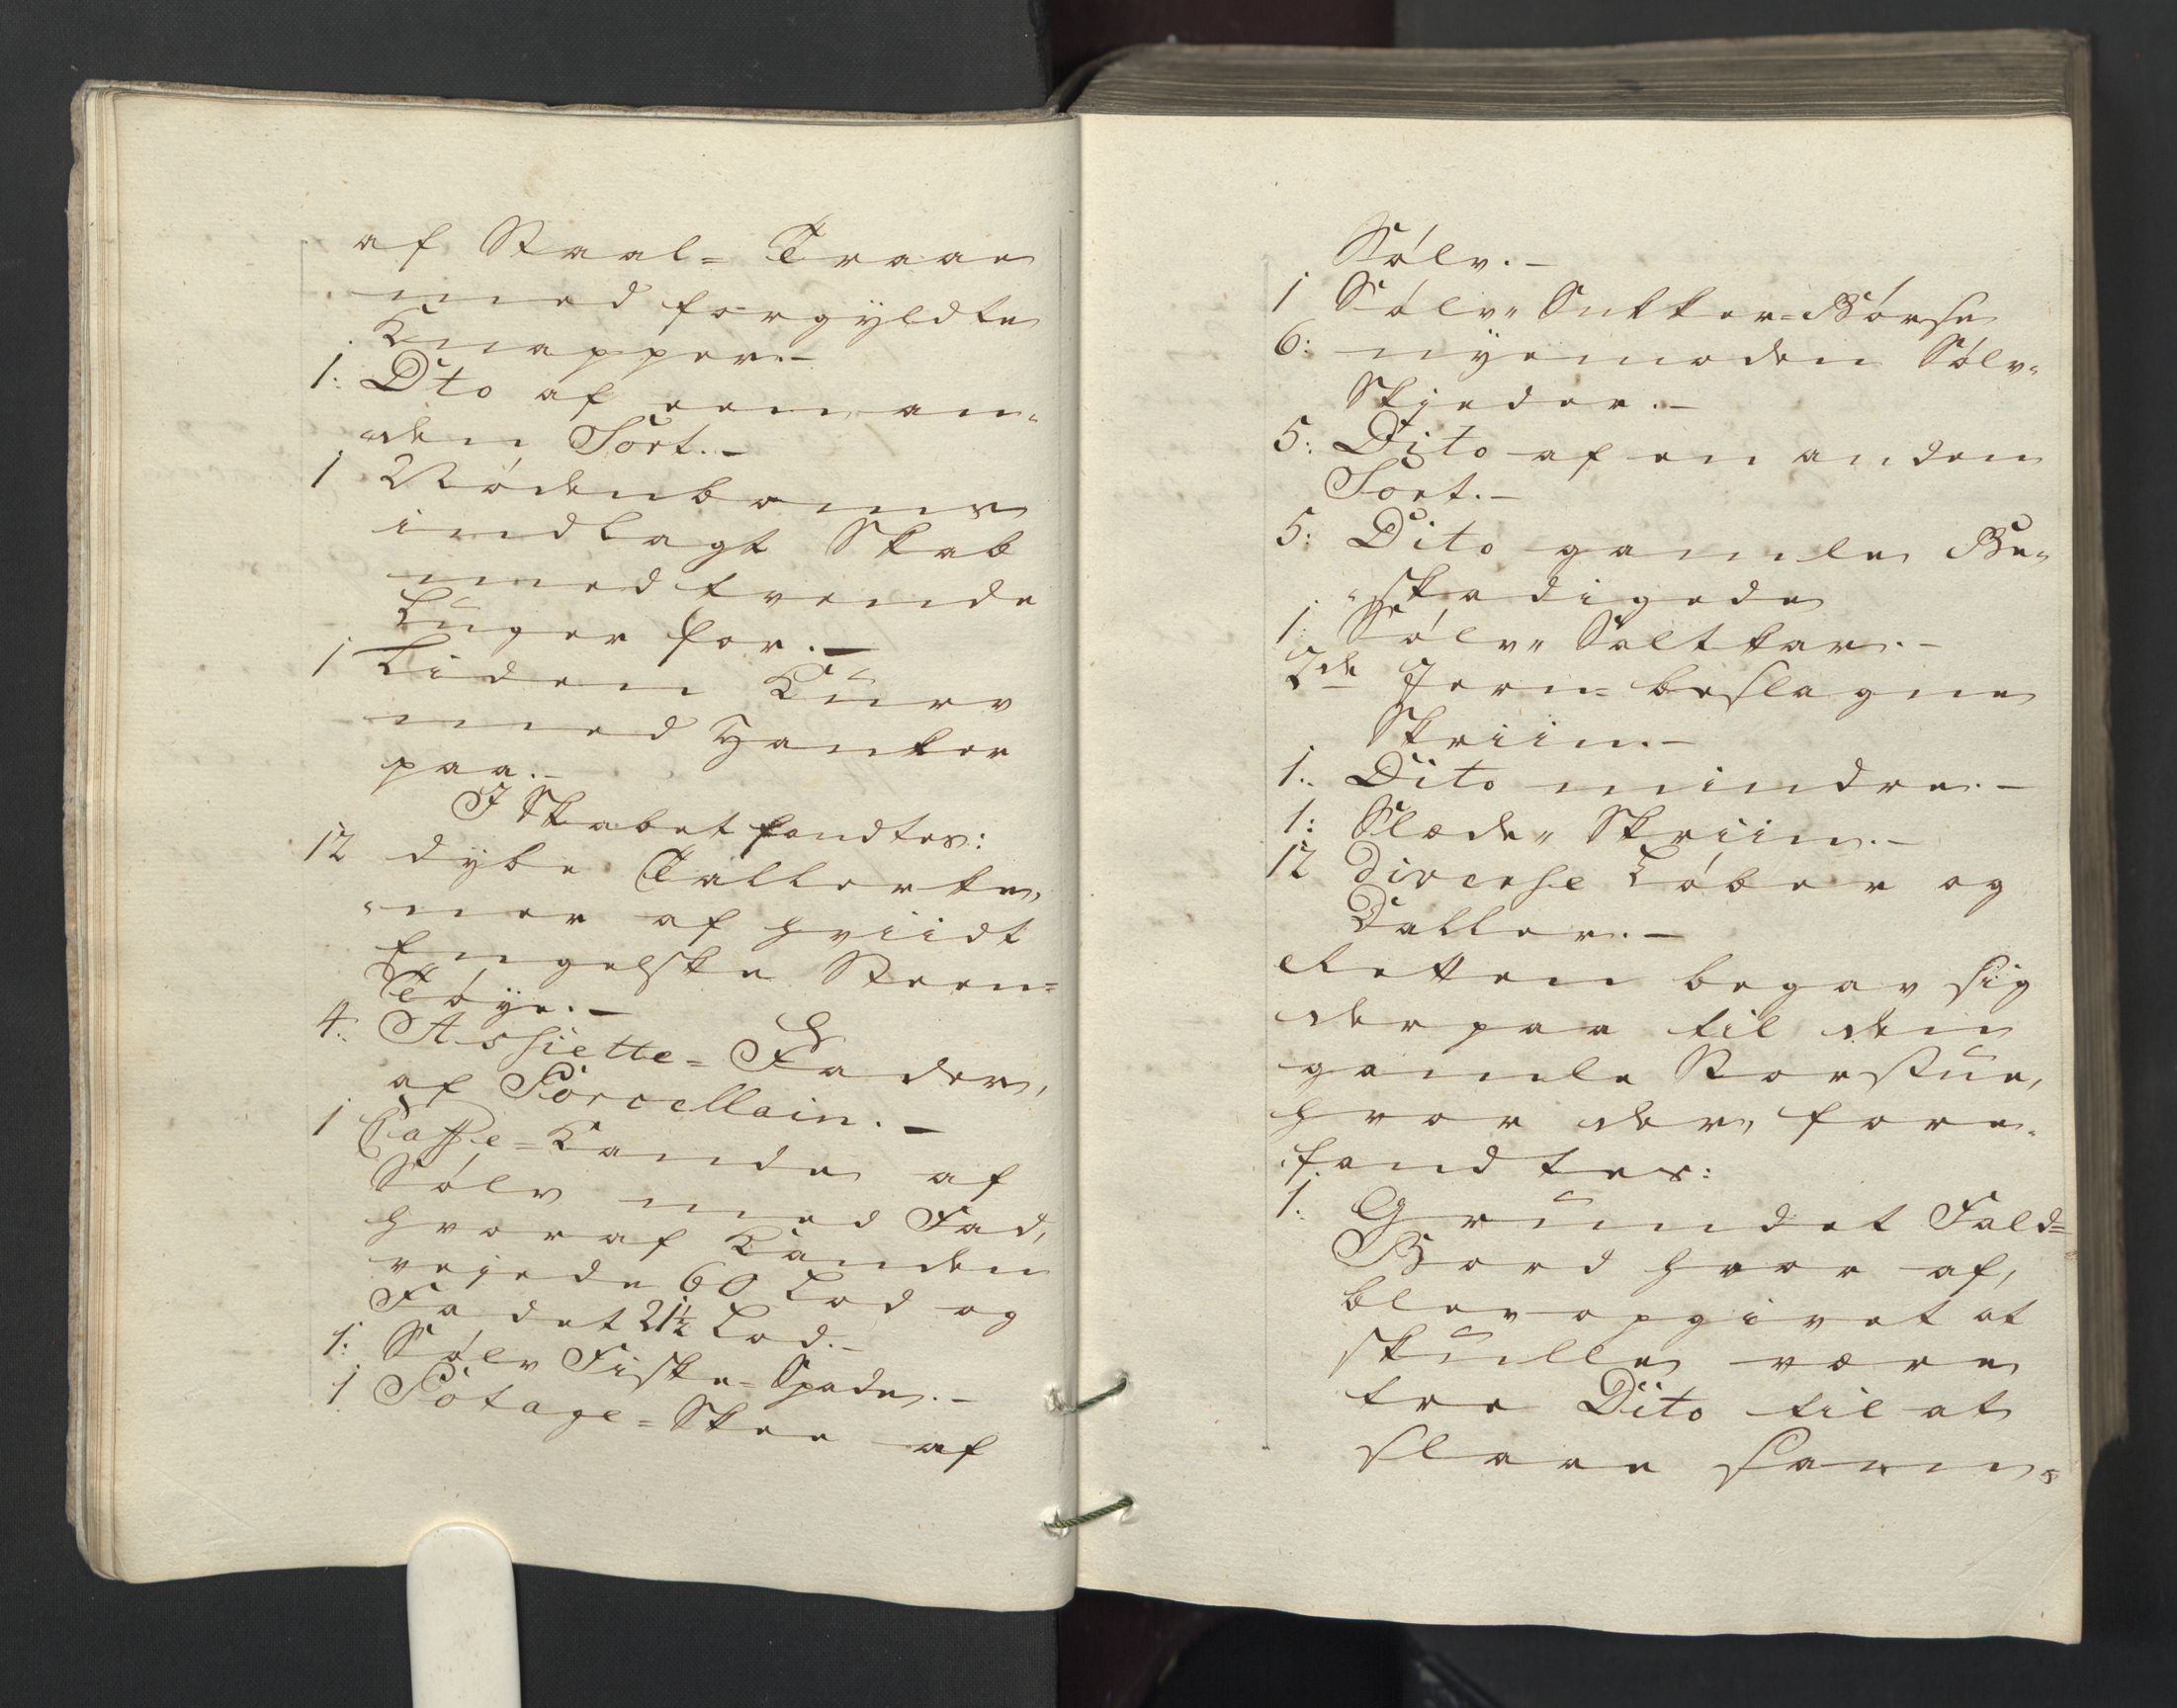 af Staal= Traae
med forgyldte
Knapper.-
1: Dto af een an=
den Sort.-
1 Nödenboms
indlagt Skab
med tvende
Luger for.-
1 Liden Kurv
med Hanker
paa.-
I Skabet fandtes:
12 dybe Tallerke,
"ner af hviidt
Engelske Steen=
Töye.-
4: Assiette= Fader,
af Porcellain.-
1 Caffe=Kande af
Sölv med Fad,
hvoraf Kanden
vejede 60 Lod og
Fadet 21½ Lod.-
1: Sölv Fiske=Spade.-
1 Potage=Skee af
Sölv.-
1 Sölv" Sukker=Börse
6: nyemoden Sölv"
Skjeder.-
5: Dito af en anden
Sort.-
5: Dito gamle Be"
"skadigede
1: Sölv" Saltkar.-
2de Jern=beslagne
Skriin.-
1: Dito mindre.-
1: Slæde" Skriin.-
12 diverse Löber og
Daller.-
Retten begav sig
derpaa til den
gamle Storstue,
hvor der, fore"
fandtes:
1: Grundet Fald=
Bord hvor af,
blev opgivet at
skulle være
tre Dito til at
slaae sam"